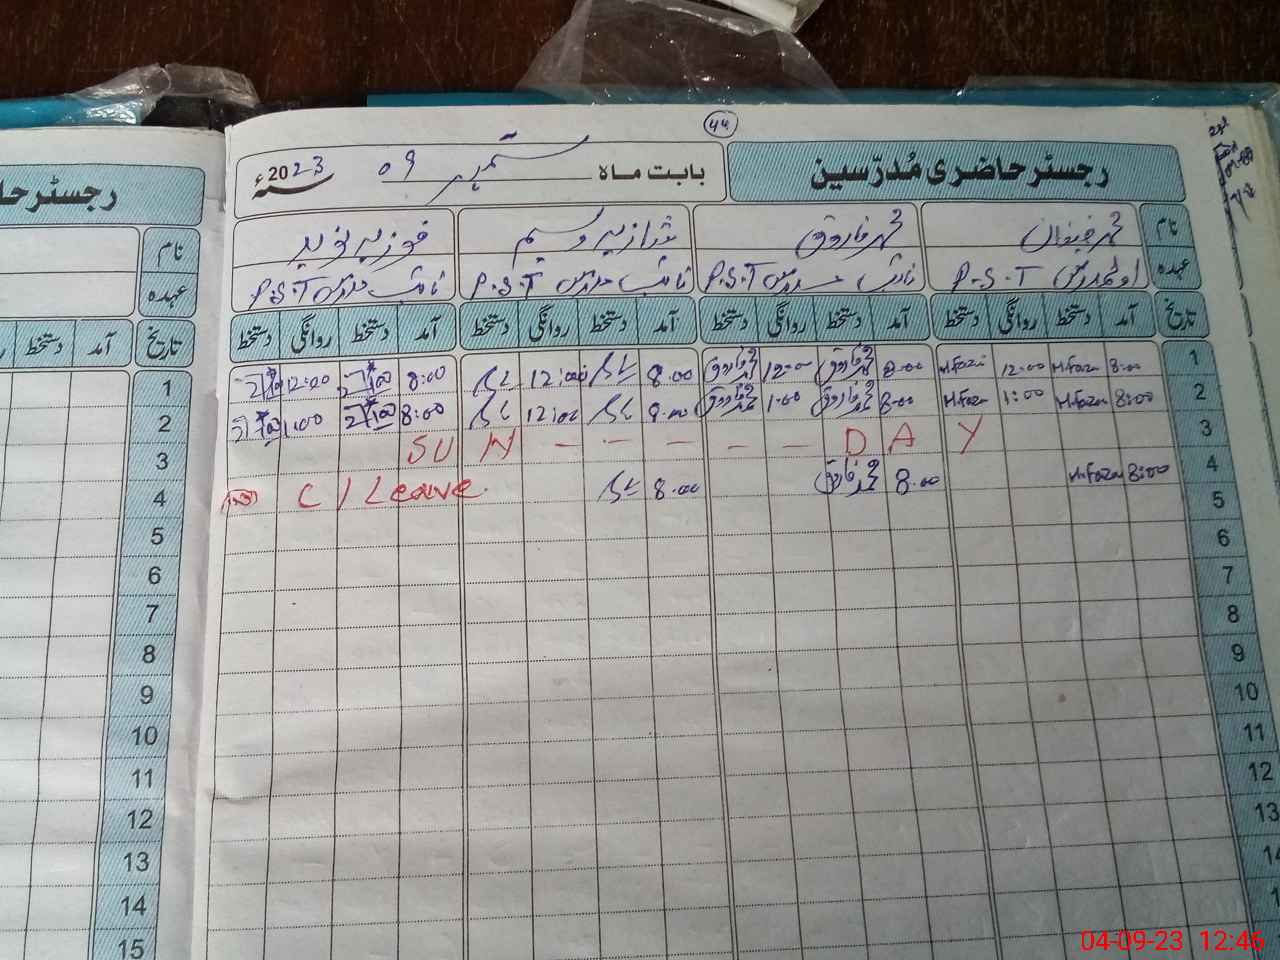 44
رجسٹر حاضری مُدرّسین
بابت ماہ ستمبر 09 2023 سنہء
نام محمد فیضان محمد فاروق شازیہ وسیم فوزیہ نوید
عہدہ اول مدرس P.S.T نائب مدرس P.S.T نائب مدرس P.S.T نائب مدرس P.S.T
تاریخ آمد دستخط روانگی دستخط آمد دستخط روانگی دستخط آمد دستخط روانگی دستخط آمد دستخط روانگی دستخط
1 8:00 M.Fazan 12:00 M.Fazan 8:00 محمد فاروق 12:00 محمد فاروق 8:00 12:00 8:00 12:00
2 8:00 M.Fazan 1:00 M.Fazan 8:00 محمد فاروق 1:00 محمد فاروق 8:00 12:00 8:00 1:00
3 SUN - - - - - DAY
4 8:00 M.Fazan 8:00 محمد فاروق 8:00 C/Leave
5
6
7
8
9
10
11
12
13
رجسٹر حا
نام
عہدہ
تاریخ آمد دستخط
1
2
3
4
5
6
7
8
9
10
11
12
13
14
15
04-09-23 12:46